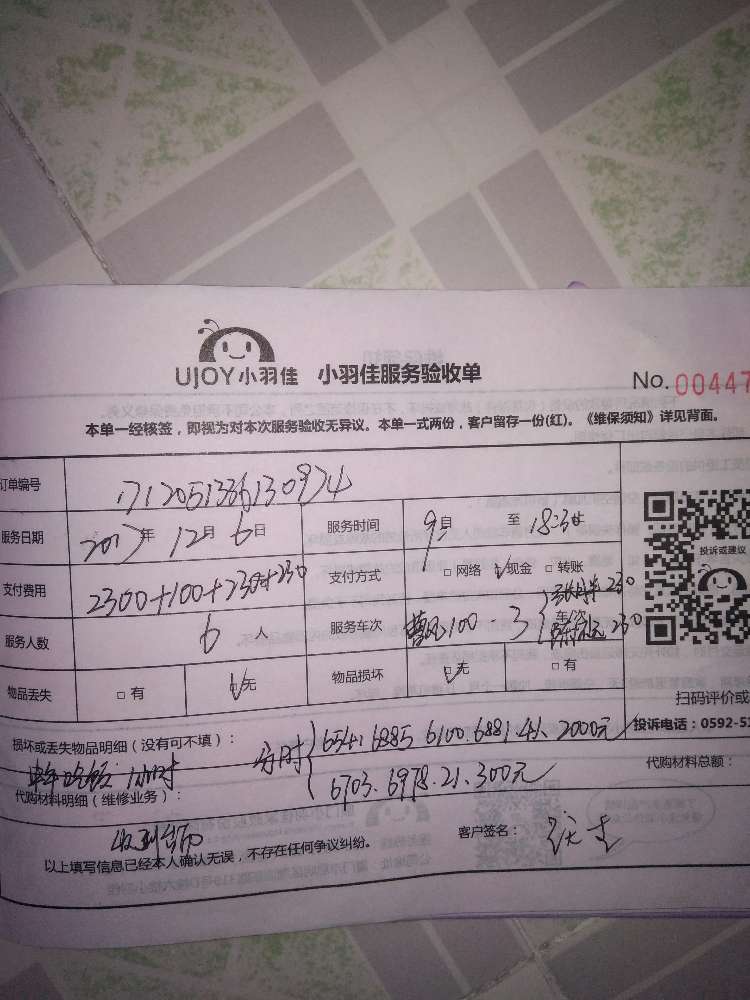 UJOY小羽佳 小羽佳服务验收单
No. 00447
本单一经核签，即视为对本次服务验收无异议。本单一式两份，客户留存一份(红)。《维保须知》详见背面。
订单编号 1712051336130974
服务日期 2017年 12月 6日 服务时间 9 至 18:30
支付费用 2300+100+230+230 支付方式 □网络 √现金 □转账
服务人数 6 人 服务车次 100 3 230 车/次 230
物品丢失 □有 √无 物品损坏 √无 □有
投诉或建议
扫码评价或
投诉电话：0592-5
损坏或丢失物品明细（没有可不填）：
6541.6885 6100.6881.4人 2000元
6703.6978.2人.300元
代购材料明细（维修业务）：
代购材料总额：
以上填写信息已经本人确认无误，不存在任何争议纠纷。
客户签名：